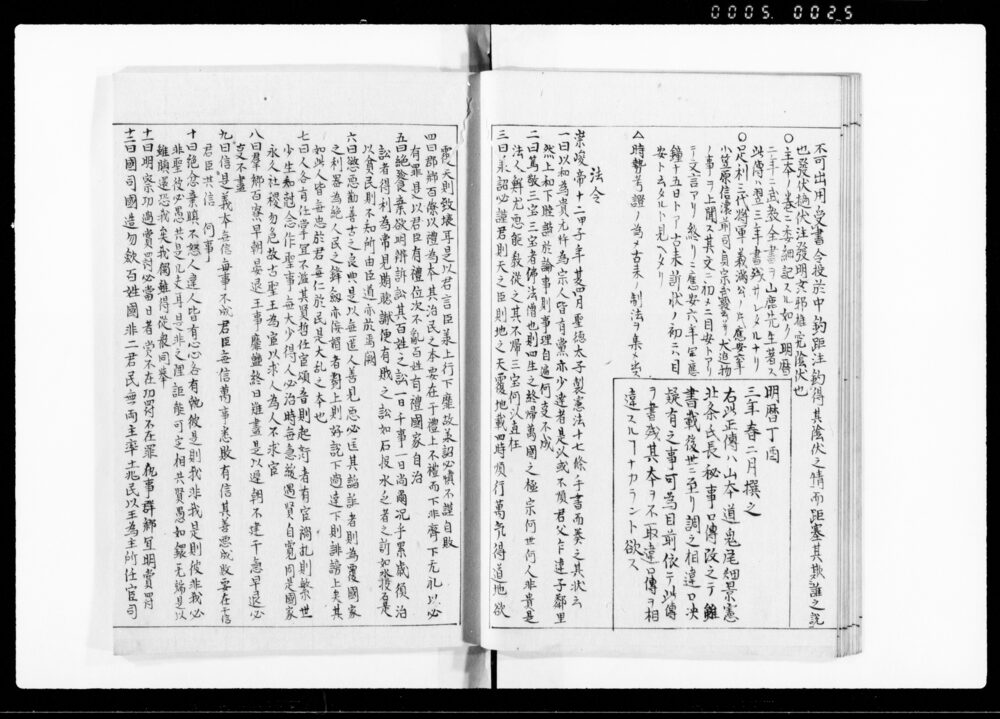 0005. 0025
不可出用ノ受書ニ令授於中ノ鈎距注ニ鈎得其陰伏之情而距塞其欺誰之説
也發伏過伏注ニ發明女邪雄完陰伏也
○主本ノ巻ニ委細記スル如ク明暦
二年ニ武教全書ヲ山鹿先生著ス
此傳ハ翌三年書残サレタルナリ
○足利三代将軍義満公ノ時應安年
小笠原信濃前司貞宗武家ヲ大追物
ノ事ヲ上聞ス其文ニ初メニ目安トアリ
テ文言アリ終リニ應安六年
鐘十五日トアリ古来訴状ノ初ニハ目
安ト云タルト見ヘタリ
△時勢考證ノ為メ古来ノ制法ヲ集メ
明暦丁酉
三年春二月撰之
右此正傳ハ山本道鬼尾畑景憲
北条氏長秘事口傳改之テ雖
書載後世ニ至リ調之相違口决
誤有之事可為目前依テ此傳
ヲ書残其本ヲ不取違口傳ヲ相
違スルヿナカラント欲ス
法令
崇峻帝十二甲子年夏四月聖徳太子製憲法十七條ニ手書而奏之其状云
一曰以和為貴无忤為宗人皆有黨亦少達者是以或不順君父乍違于鄰里
然上和下睦諧於論事則事理自通何事不成
二曰篤敬三宝三宝者佛法僧也則四生之終帰萬國之極宗何世何人非貴是
法人鮮尤悪能教従之其不帰三宝何以直枉
三曰承詔必謹君則天之臣則地之天覆地載四時順行萬気得通地欲
覆天則致壊耳是以君言臣義上行下靡故承詔必慎不謹自敗
四曰郡卿百僚以禮為本其治民之本要在于禮上不禮而下非齊下无礼以必
有罪是以君臣有禮位次不乱百姓有禮國家自治
五曰絶餮棄欲明辨訴訟其百姓之訟一日千事一日尚爾况乎累歳須治
訟者得利為常見賄聴讞便有財之訟如石投水乏者之訴如水投石是
以貧民則不知所由臣道亦於焉闕
六曰懲悪勧善古之良典是以每匿人善見悪必匡其諂詐者則為覆國家
之利器為絶人民之鋒剱亦佞媚者對上則好説下過逢下則誹謗上矣其
如此人皆每忠於君每仁於民是大乱之本也
七曰人各有任掌宜不濫其賢哲任官頌音則起奸者有官禍乱則繁世
少生知尅念作聖事每大少得人必治時每急緩遇賢自寛因是國家
永久社稷勿危故古聖王為官以求人為人不求官
八曰羣卿百寮早朝晏退王事靡盬終日難盡是以遅朝不逮于急早退必
事不盡
九曰信是義本每信每事不成君臣每信萬事悉敗有信其善悪成敗要在于信
君臣共信　何事
十曰絶忿棄瞋不怒人違人皆有心心各有執彼是則我非我是則彼非我必
非聖彼必愚共是凡夫耳是非之理誰能可定相共賢愚如鐶无端是以
雖瞋還恐我失我獨雖得從衆同挙
十一曰明察功過賞罸必當日者賞不在功罸不在罪執事群卿宜明賞罸
十二曰國司國造勿歛百姓國非二君民無两主率土兆民以王為主所任官司